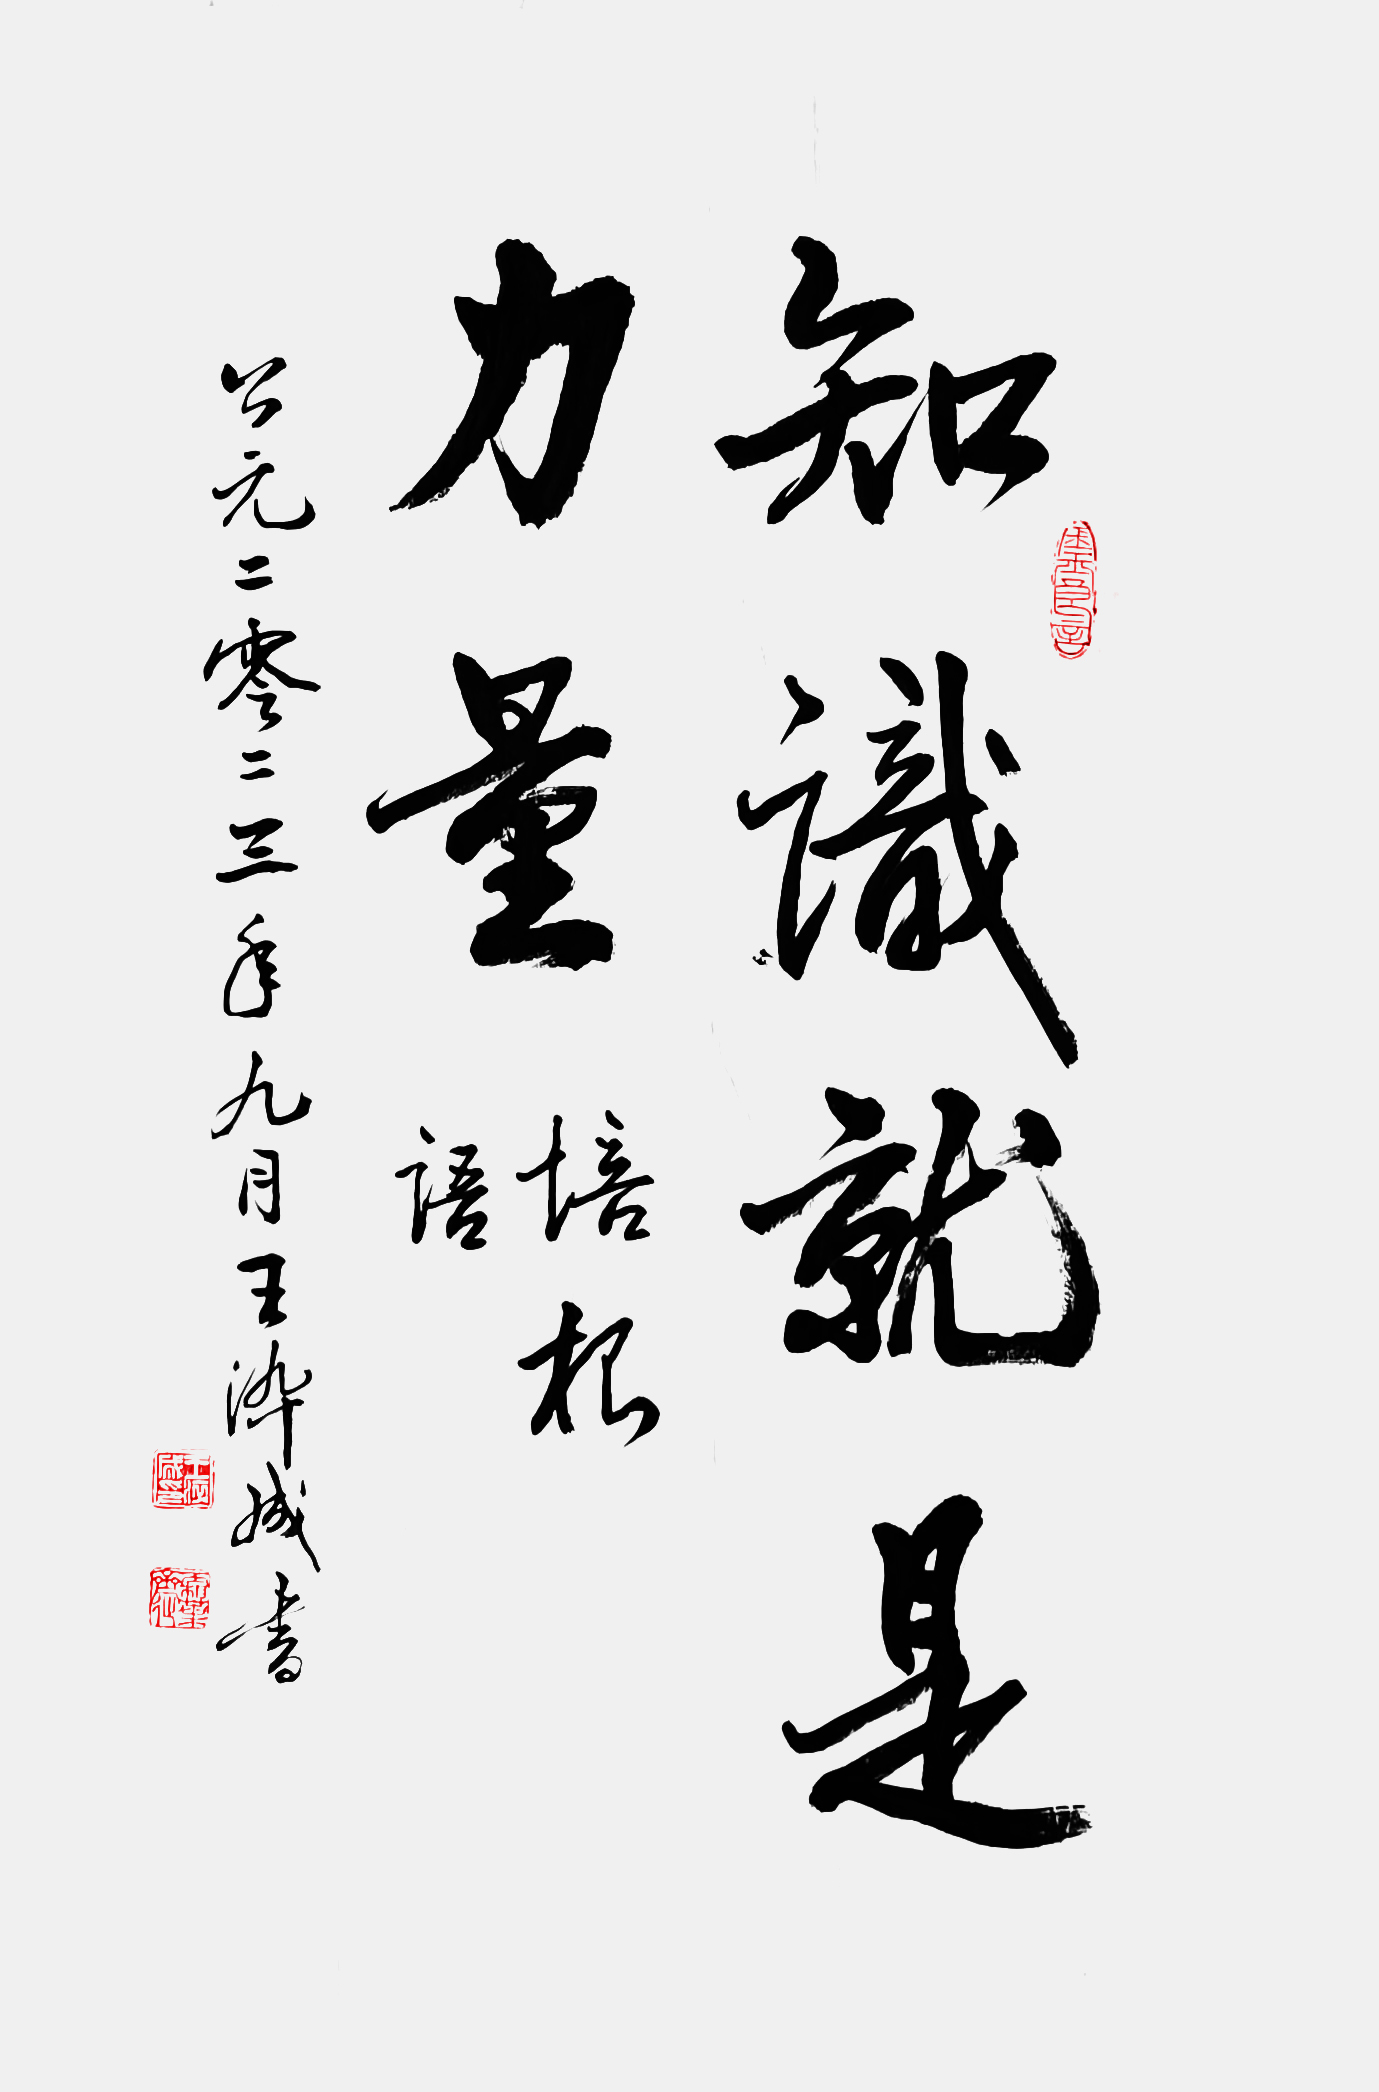 知識就是
力量
培根
語
公元二零二三年九月王染城書